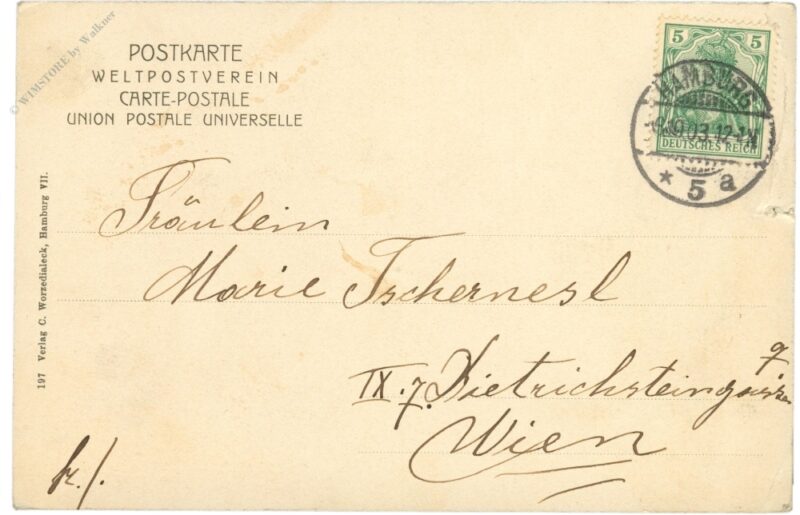 © WIMSTORE by Walkner
POSTKARTE
WELTPOSTVEREIN
CARTE-POSTALE
UNION POSTALE UNIVERSELLE
5 5
DEUTSCHES REICH
HAMBURG
03.12-1N
* 5 a
197 Verlag C. Worzedialeck, Hamburg VII.
Fräulein
Marie Tschernesl
9
IX.7. Dietrichsteingasse
Wien